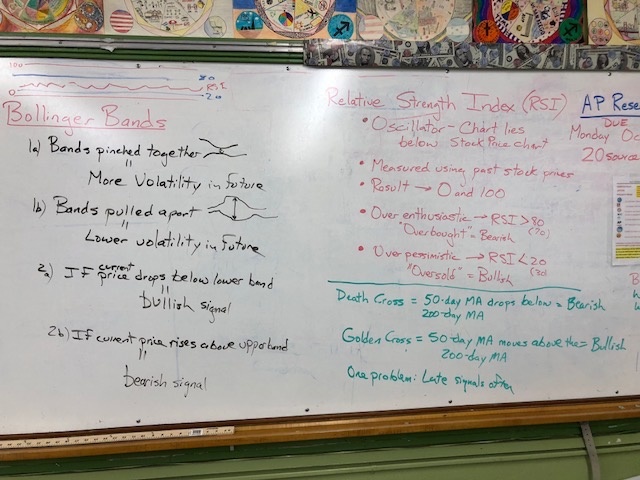 100
80
RSI
0
20
Bollinger Bands
1a) Bands pinched together
=
More Volatility in Future
1b) Bands pulled apart
=
Lower volatility in Future
2a) If current price drops below lower band
=
bullish signal
2b) If current price rises above upper band
=
bearish signal
Relative Strength Index (RSI)
• Oscillator - Chart lies
below Stock Price chart
• Measured using past stock prices
• Result → 0 and 100
• Over enthusiastic → RSI > 80
(70)
"Overbought" = Bearish
• Over pessimistic → RSI < 20
(30)
"Oversold" = Bullish
Death Cross = 50-day MA drops below = Bearish
200-day MA
Golden Cross = 50-day MA moves above the = Bullish
200-day MA
One problem: Late signals often
AP Rese
DUE
Monday Oc
20 source